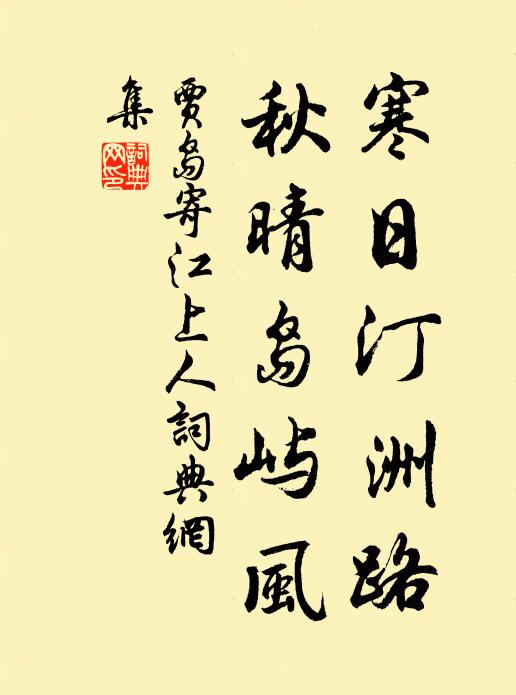 寒日汀洲路
秋晴島嶼風
賈島寄江上人詞典網
集
詞典網印